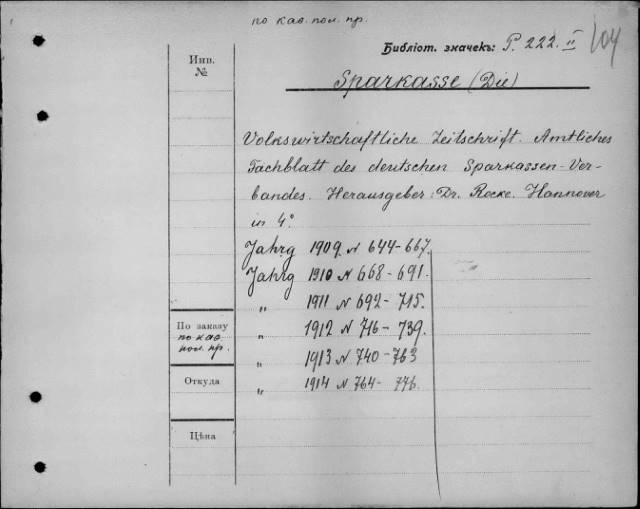 по каб. пол. пр.
Библіот. значекъ: P. 222. II 104
Инв. №
Sparkasse (Die)
Volkswirtschaftliche Zeitschrift. Amtliches
Fachblatt des deutschen Sparkassen-Ver-
bandes. Herausgeber: Dr. Rocke. Hannover
in 4°
Jahrg 1909. N 644-667.
Jahrg 1910 N 668-691.
„ 1911 N 692-715.
По заказу
по каб.
пол. пр.
„ 1912 N 716-739.
„ 1913 N 740-763
Откуда
„ 1914 N 764- 776.
Цѣна